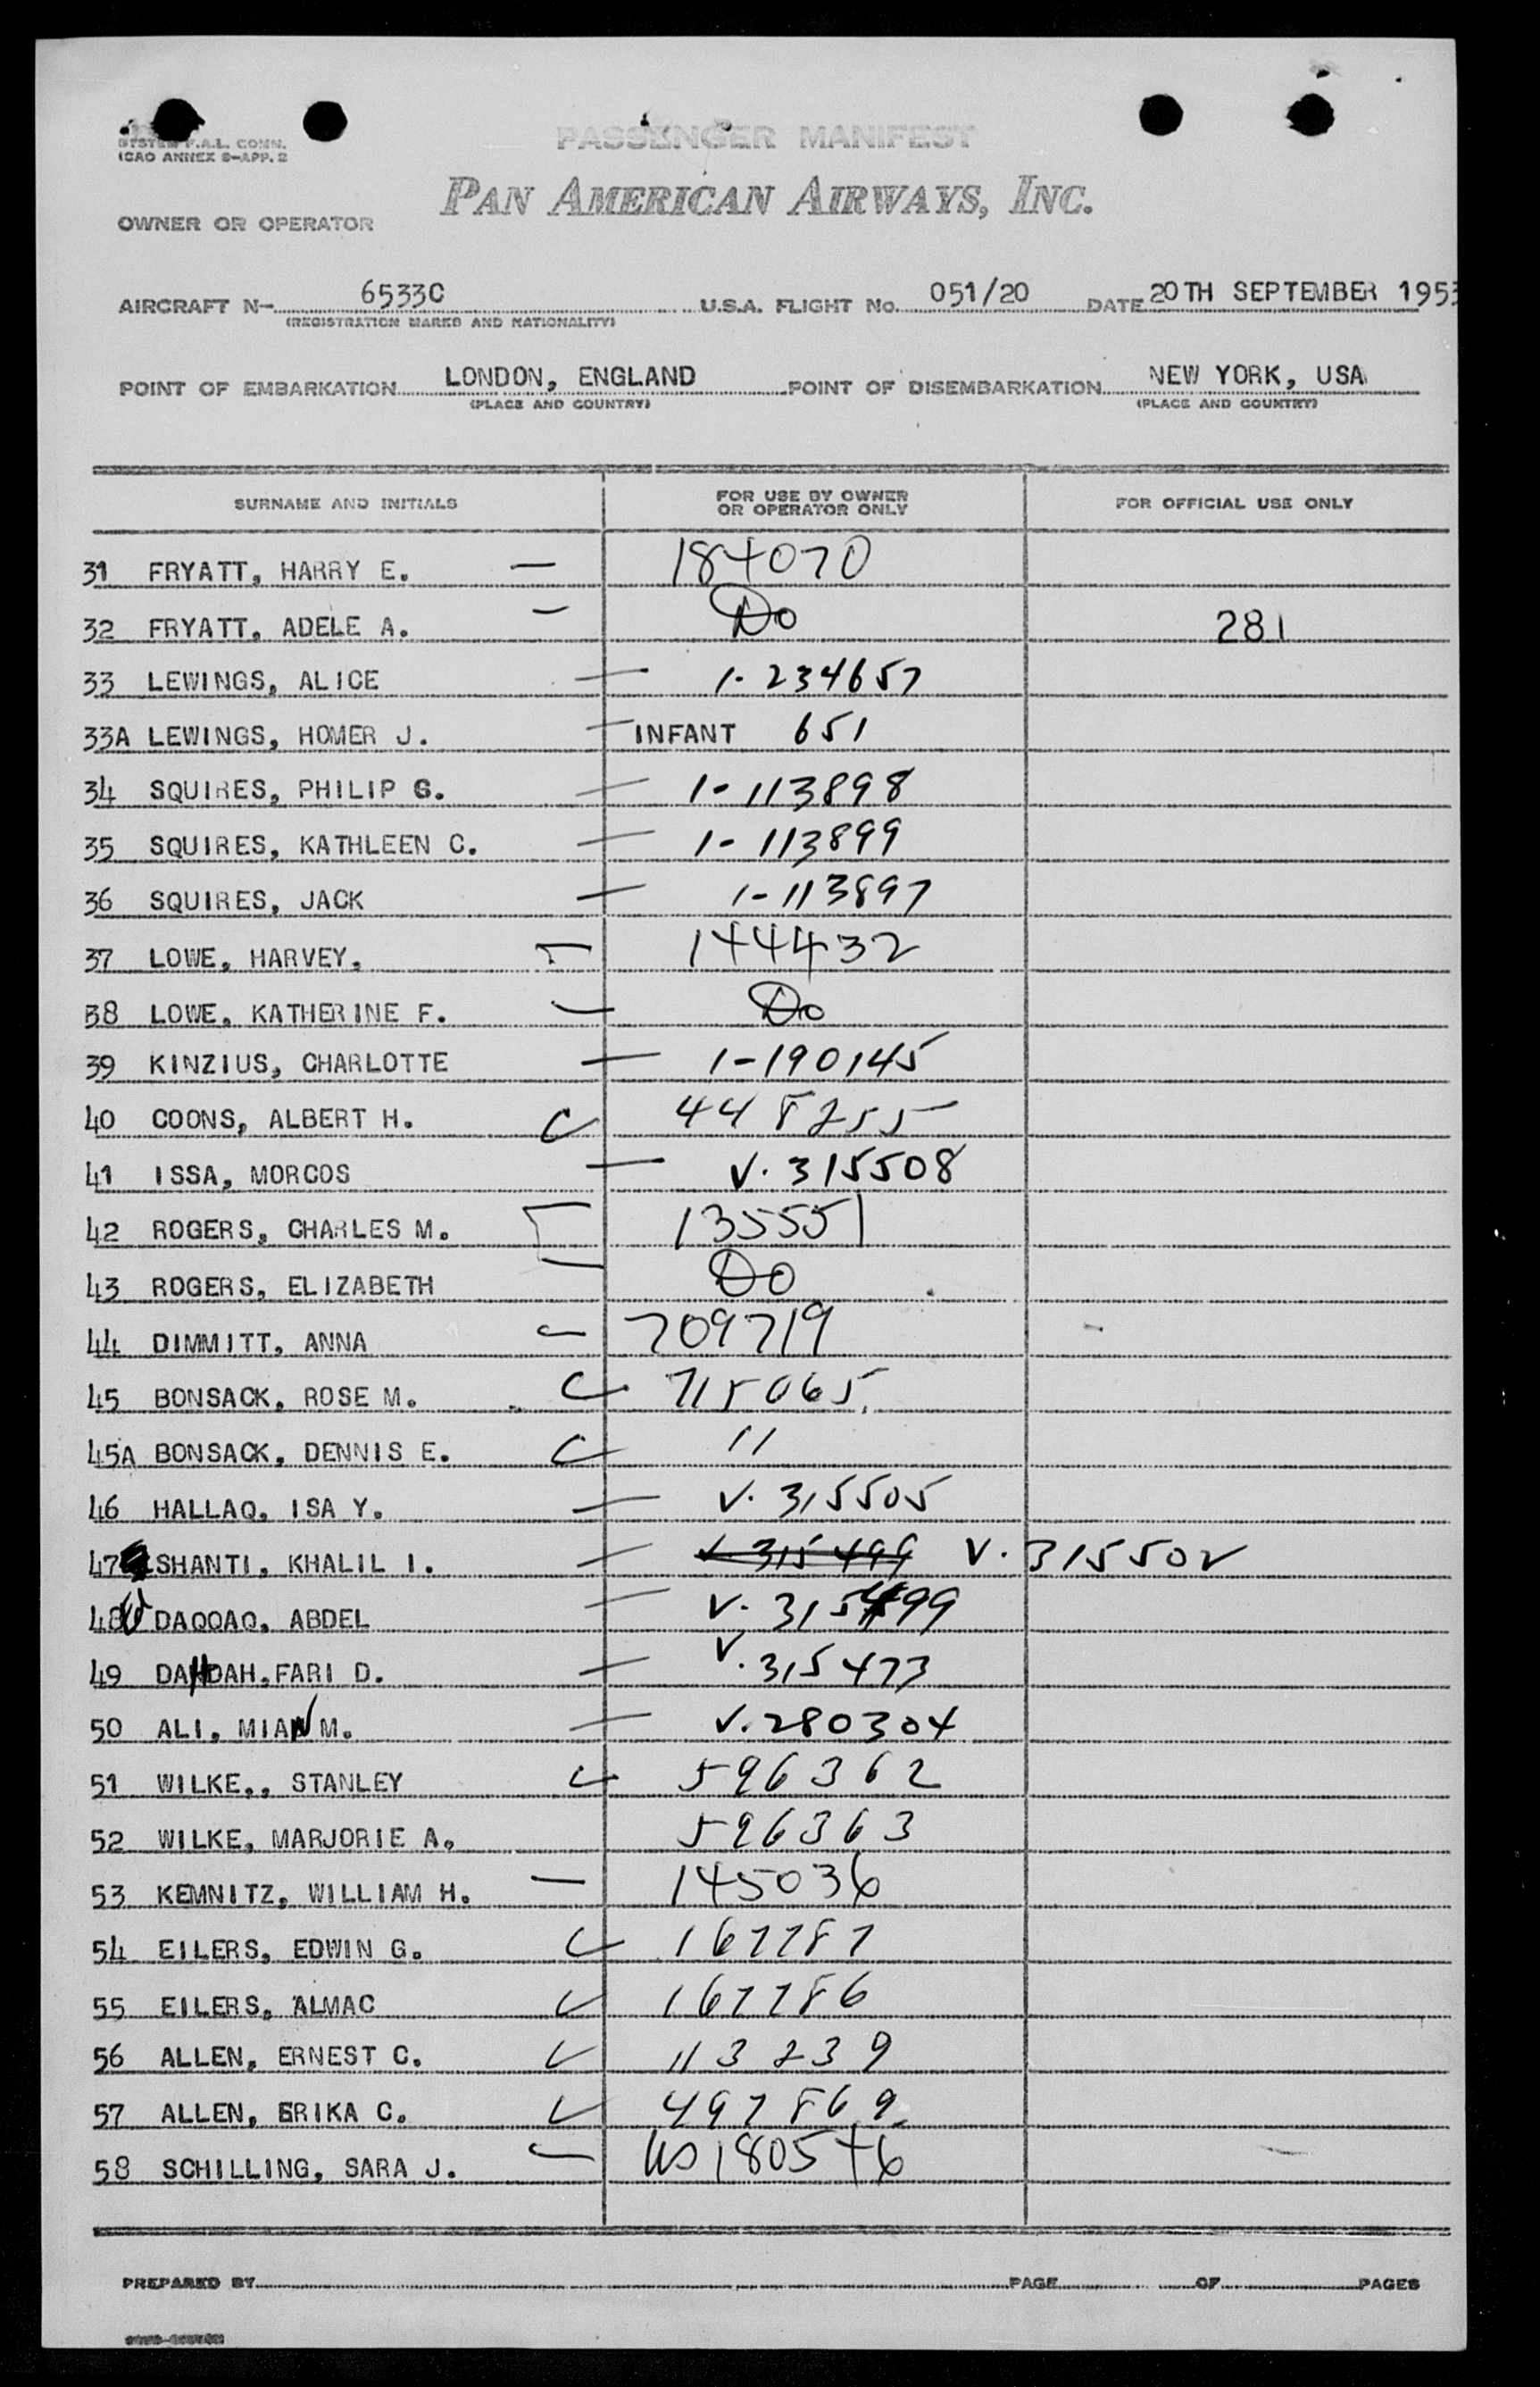 SYSTEM F.A.L. COMN.
ICAO ANNEX 9-APP. 2
PASSENGER MANIFEST
PAN AMERICAN AIRWAYS, INC.
OWNER OR OPERATOR
AIRCRAFT N- 6533C U.S.A. FLIGHT No. 051/20 DATE 20TH SEPTEMBER 1953
(REGISTRATION MARKS AND NATIONALITY)
POINT OF EMBARKATION LONDON, ENGLAND POINT OF DISEMBARKATION NEW YORK, USA
(PLACE AND COUNTRY) (PLACE AND COUNTRY)
SURNAME AND INITIALS FOR USE BY OWNER OR OPERATOR ONLY FOR OFFICIAL USE ONLY
31 FRYATT, HARRY E. — 184070
32 FRYATT, ADELE A. — Do 281
33 LEWINGS, ALICE — 1-234657
33A LEWINGS, HOMER J. — INFANT 651
34 SQUIRES, PHILIP G. — 1-113898
35 SQUIRES, KATHLEEN C. — 1-113899
36 SQUIRES, JACK — 1-113897
37 LOWE, HARVEY. — 144432
38 LOWE, KATHERINE F. — Do
39 KINZIUS, CHARLOTTE — 1-190145
40 COONS, ALBERT H. C 448255
41 ISSA, MORCOS — V. 315508
42 ROGERS, CHARLES M. 135551
43 ROGERS, ELIZABETH — Do
44 DIMMITT, ANNA — 709719
45 BONSACK, ROSE M. C 715065.
45A BONSACK, DENNIS E. C 11
46 HALLAQ, ISA Y. — V. 315505
47 SHANTI, KHALIL I. — V 315499 V. 315502
48 DAQQAQ, ABDEL — V. 315499
49 DAHDAH, FARI D. — V. 315473
50 ALI, MIAN M. — V. 280304
51 WILKE,, STANLEY C 596362
52 WILKE, MARJORIE A. 596363
53 KEMNITZ, WILLIAM H. — 145036
54 EILERS, EDWIN G. C 167787
55 EILERS, ALMAC C 167786
56 ALLEN, ERNEST C. C 113239
57 ALLEN, ERIKA C. C 497869
58 SCHILLING, SARA J. — US 180546
PREPARED BY PAGE OF PAGES